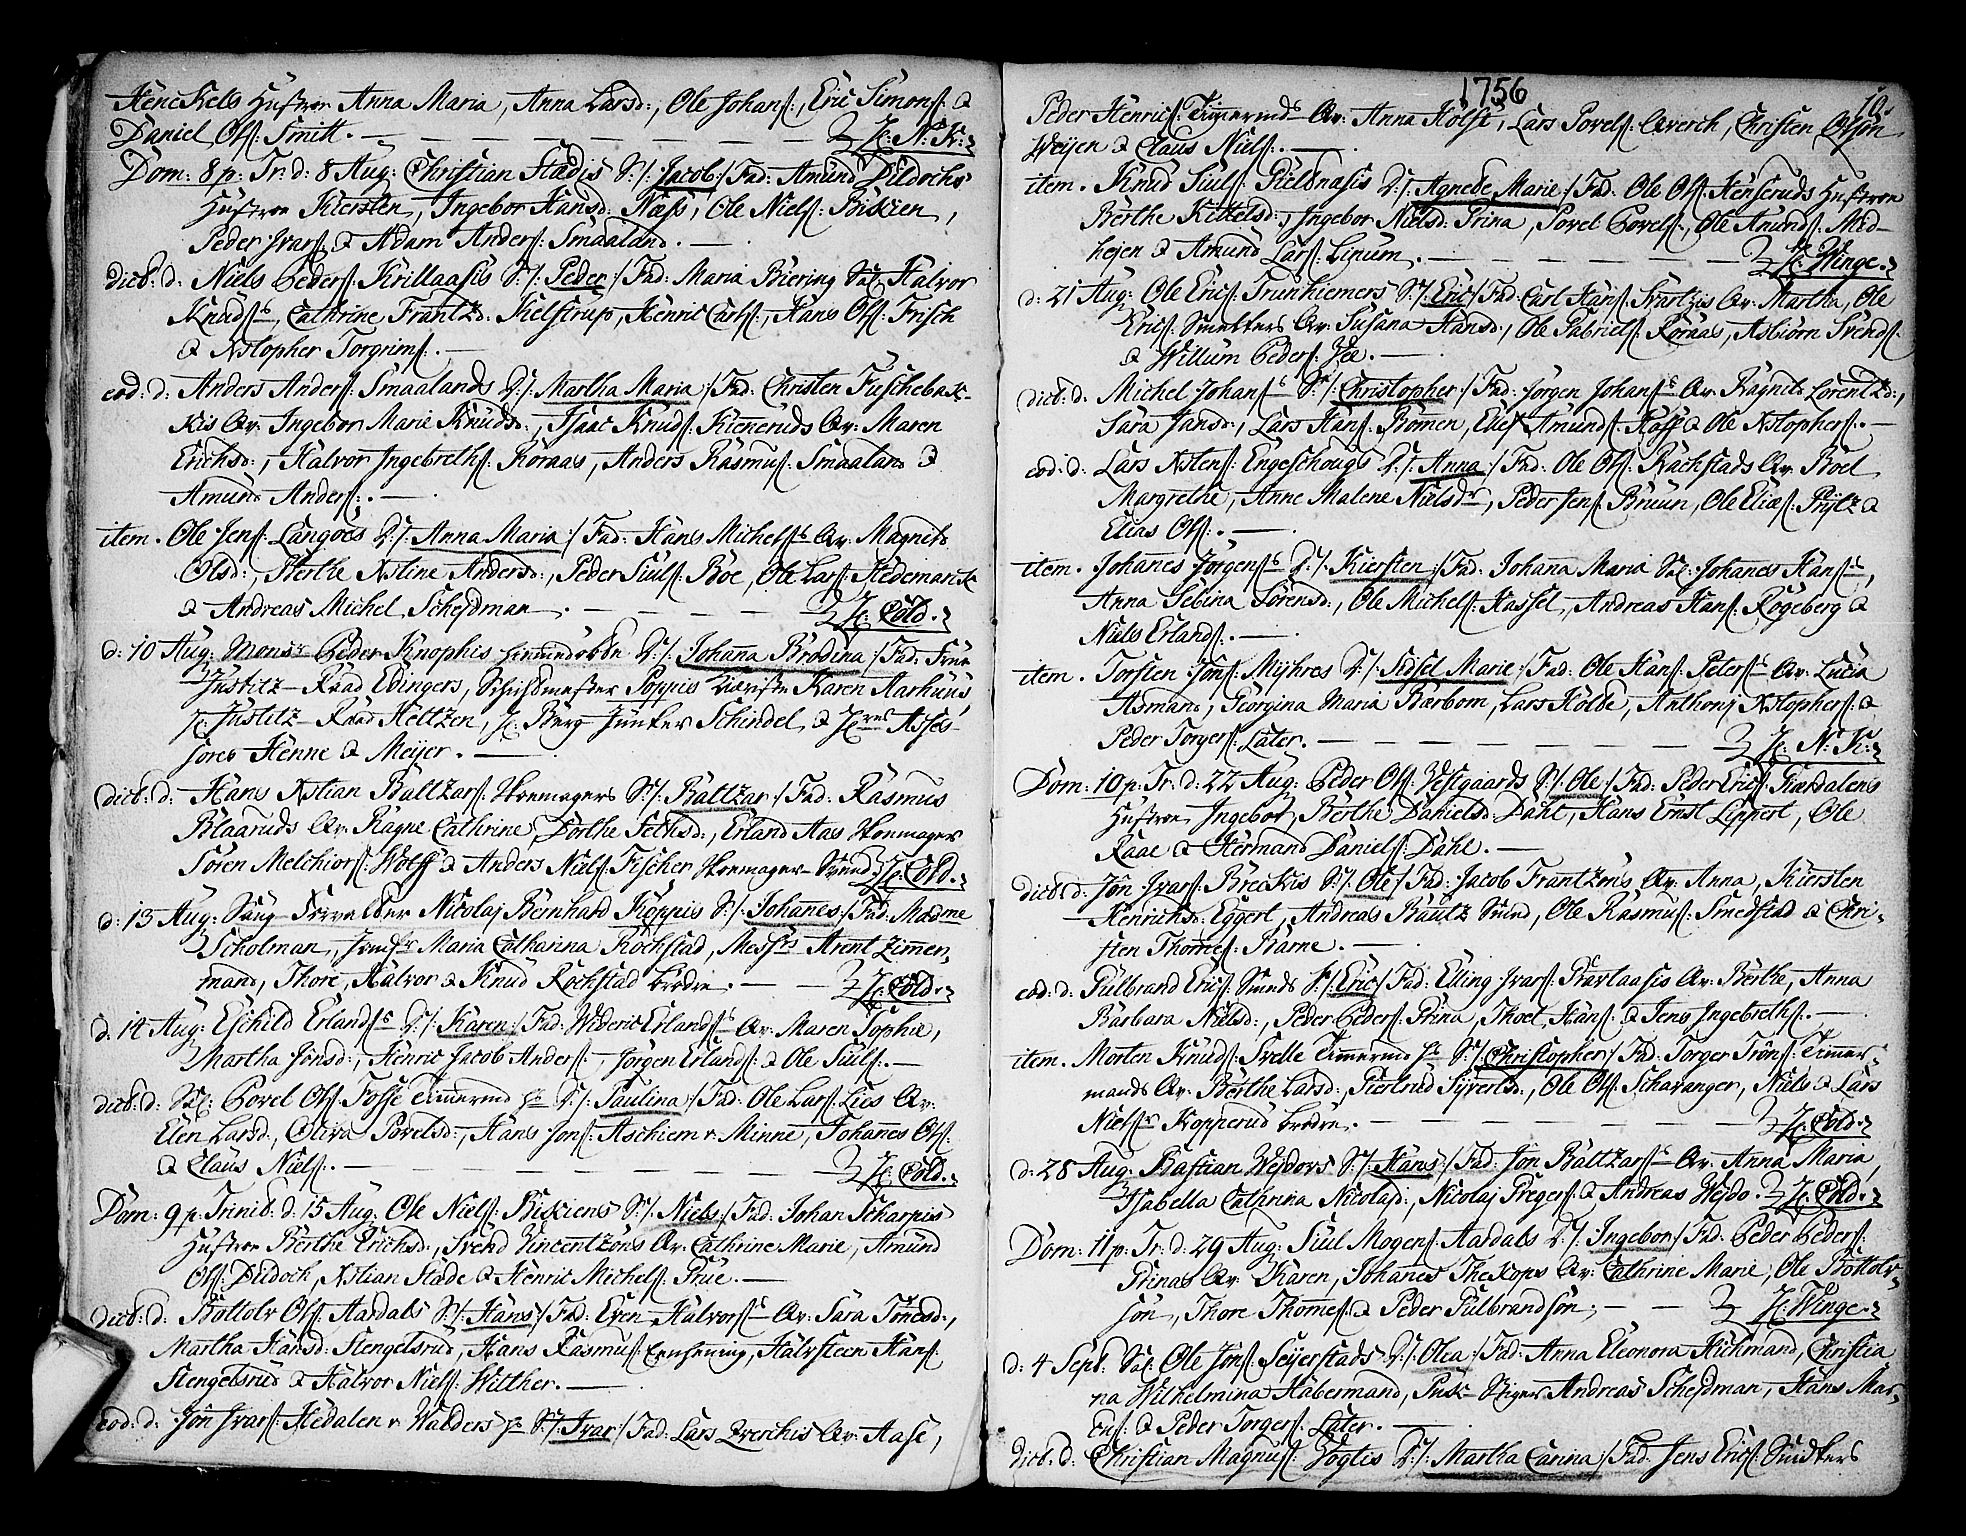 Henickels Hustroe Anna Maria, Anna Larsd:, Ole Johans:, Eric Simons: &
Daniel Ols: Smitt. — H: N: K:
Dom: 8 p: Tr: d: 8 Aug: Christian Stadis S:/: Jacob :/ Fad: Amund Dildochs
Hustroe Kiersten, Ingebor Hansd: Næss, Ole Niels: Bikien,
Peder Ivars: & Adam Anders: Smaaland. —
dict: d: Niels Peders: Krillaasis S:/: Peder :/ Fad: Maria Biering Sal: Halvor
Knuds:, Cathrine Frantzd: Kielstrup, Henric Carls:, Hans Ols: Frisch
& Xstopher Torgrims:. —
eod: d: Anders Anders: Smaalands D:/: Martha Maria :/ Fad: Christen Fuschebak-
kis Qv: Ingebor Marie Knudsd:, Isaac Knuds: Kieneruds Qv: Maren
Erichsd:, Halvor Ingebreths: Koraas, Anders Rasmus: Smaaland &
Amund Anders:. —
item. Ole Jens: Langoes D:/: Anna Maria :/ Fad: Hans Michels: Qv: Magnild
Olsd:, Berthe Xstine Andersd:, Peder Siuls: Boe, Ole Lars: Hedemark
& Andreas Michel Scheydman. — H: Cold.
d: 10 Aug: Monsr Peder Knophis D:/: Johana Brodina :/ Fad: Frue
Justitz-Raad Edingers, Schichtmester Poppis Kieriste Karen Aarhuus,
H: Justitz-Raad Heltzen, H: Berg-Junker Schindel, & Hrne Asses-
sores Henne & Meyer. —
dict: d: Hans Xstian Baltzars: Skomagers S:/: Baltzar :/ Fad: Rasmus
Blaaruds Qv: Ragne Cathrine, Dorthe Sethsd:, Erland Aas Skomager
Søren Melchiors: Wolff & Anders Niels: Fischer Skomager-Svend. H: Cold.
d: 13 Aug: Saug-Forvalter Nicolaj Bernhard Koppis S:/: Johannes :/ Fad: Madme
Scholman, Jomfr Maria Catharina Rochstad, Messrs Arent Zimmer-
mand, Thore, Halvor & Knud Rockstad brødre. — H: Cold.
d: 14 Aug: Eschild Erlands: D:/: Karen :/ Fad: Wideric Erlands: Qv: Maren Sophie,
Martha Jonsd:, Henric Jacob Anders:, Jørgen Erlands: & Ole Siuls:. —
dict: d: Sal: Povel Ols: Fosse Timermd D:/: Paulina :/ Fad: Ole Lars: Lies Qv:
Elen Larsd:, Oliva Povelsd:, Hans Jons: Aschiem v. Minne, Johanes Ols:
& Claus Niels:. — H: Cold.
Dom: 9 p: Trinit: d: 15 Aug: Ole Niels: Bikiens S:/: Niels :/ Fad: Johan Scharpiis
Hustroe Berthe Erichsd:, Svend Vincentzons Qv: Cathrine Marie, Amund
Ols: Dildoch, Xstian Stade & Henric Michels: Prüe. —
dict: d: Bottolv Ols: Aardals S:/: Hans :/ Fad: Even Halvors: Qv: Sara Tønesd:,
Martha Hansd: Stengelsrud, Hans Rasmus:, Halvsteen Hans:
Stengelsrud & Halvor Niels: Witther. —
eod: d: Jon Ivars: Hedalen v. Walders S:/: Ivar :/ Fad: Lars Qverchis Qv: Aase,
1756
10.
Peder Henrics: Timermds Qv: Anna Holst, Lars Povels: Qverch, Christen Olsøn
Weyen & Claus Niels:. —
item. Knud Siuls: Gieldnasis D:/: Agnede Marie :/ Fad: Ole Ols: Henseruds Hustroe
Berthe Kittelsd:, Ingebor Nielsd: Prina, Povel Povels:, Ole Amunds: Mid-
hejen & Amund Lars: Linum. — H: Winge.
d: 21 Aug: Ole Erics: Trunhiemers S:/: Eric :/ Fad: Carl Hans: Svartzis Qv: Martha, Ole
Erics: Smelters Qv: Susana Hansd:, Ole Gabriels: Koraas, Asbiørn Svends:
& Willum Peders: Vee. —
dict: d: Michel Johans: S:/: Christopher :/ Fad: Jørgen Johans: Qv: Ragnild Lorentzd:,
Sara Jansd:, Lars Hans: Bömen, Elef Amunds: Hoff & Ole Xstophers:. —
eod: d: Lars Xstens: Engeschougs D:/: Anna :/ Fad: Ole Ols: Rachstads Qv: Boel
Margrethe, Anne Malene Nielsdr, Peder Jens: Bruun, Ole Elias: Prytz &
Elias Ols:. —
item. Johanes Jørgens: D:/: Kiersten :/ Fad: Johana Maria Sal: Johanes Hans:,
Anna Sebina Sørensd:, Ole Michels: Hassel, Andreas Hans: Rogeberg &
Niels Erlands:. —
item. Torsten Jons: Myhres D:/: Sidsel Marie :/ Fad: Ole Hans: Peters: Qv: Lucia
Asmand, Georgina Maria Barbom, Lars Holde, Anthony Xstophers: &
Peder Torgers: Later. — H: N: K:
Dom: 10 p: Tr: d: 22 Aug: Peder Ols: Vestgaards S:/: Ole :/ Fad: Peder Erics: Fiærdalens
Hustroe Ingebor, Berthe Danielsd: Dahl, Hans Ernst Lippert, Ole
Raae & Herman Daniels: Dahl. —
dict: d: Jon Ivars: Breckis S:/: Ole :/ Fad: Jacob Frantzøns Qv: Anna, Kiersten
Henrichsd: Eggert, Andreas Bautz Smed, Ole Rasmus: Smedstad & Chri-
sten Thomes: Barne. —
eod: d: Gulbrand Erics: Smeds S:/: Eric :/ Fad: Elling Ivars: Pravlaasis Qv: Berthe, Anna
Barbara Nielsd:, Peder Peders: Prina, Thoet Hans: & Jens Ingebreths:. —
item. Morten Knuds: Svelle Timermd S:/: Christopher :/ Fad: Torger Trons: Timer-
mands Qv: Berthe Larsd:, Giertrud Syvertsd:, Ole Ols: Schavanger, Niels & Lars
Nielss: Kopperud brødre. — H: Cold.
d: 28 Aug: Bastian Wejdors S:/: Hans :/ Fad: Jon Baltzars: Qv: Anna Maria,
Isabella Catharina Nicolajd:, Nicolaj Pregers: & Andreas Wejdo. H: Cold.
Dom: 11 p: Tr: d: 29 Aug: Siul Mogens: Aardals D:/: Ingebor :/ Fad: Peder Peders:
Prinas Qv: Karen, Johanes Thekops Qv: Cathrine Marie, Ole Bottolv-
søn, Thore Thomes: & Peder Gulbrandsøn; — H: Winge.
d: 4 Sept: Sal: Ole Jons: Seyerstads D:/: Olea :/ Fad: Anna Eleonora Hichmand, Christia
na Wilhelmina Habermand, Puk-Stiger Andreas Scheydman, Hans Mar-
ens: & Peder Torgers: Later. —
dict: d: Christian Magnus: Vogtis D:/: Martha Carina :/ Fad: Jens Erics: Smidters